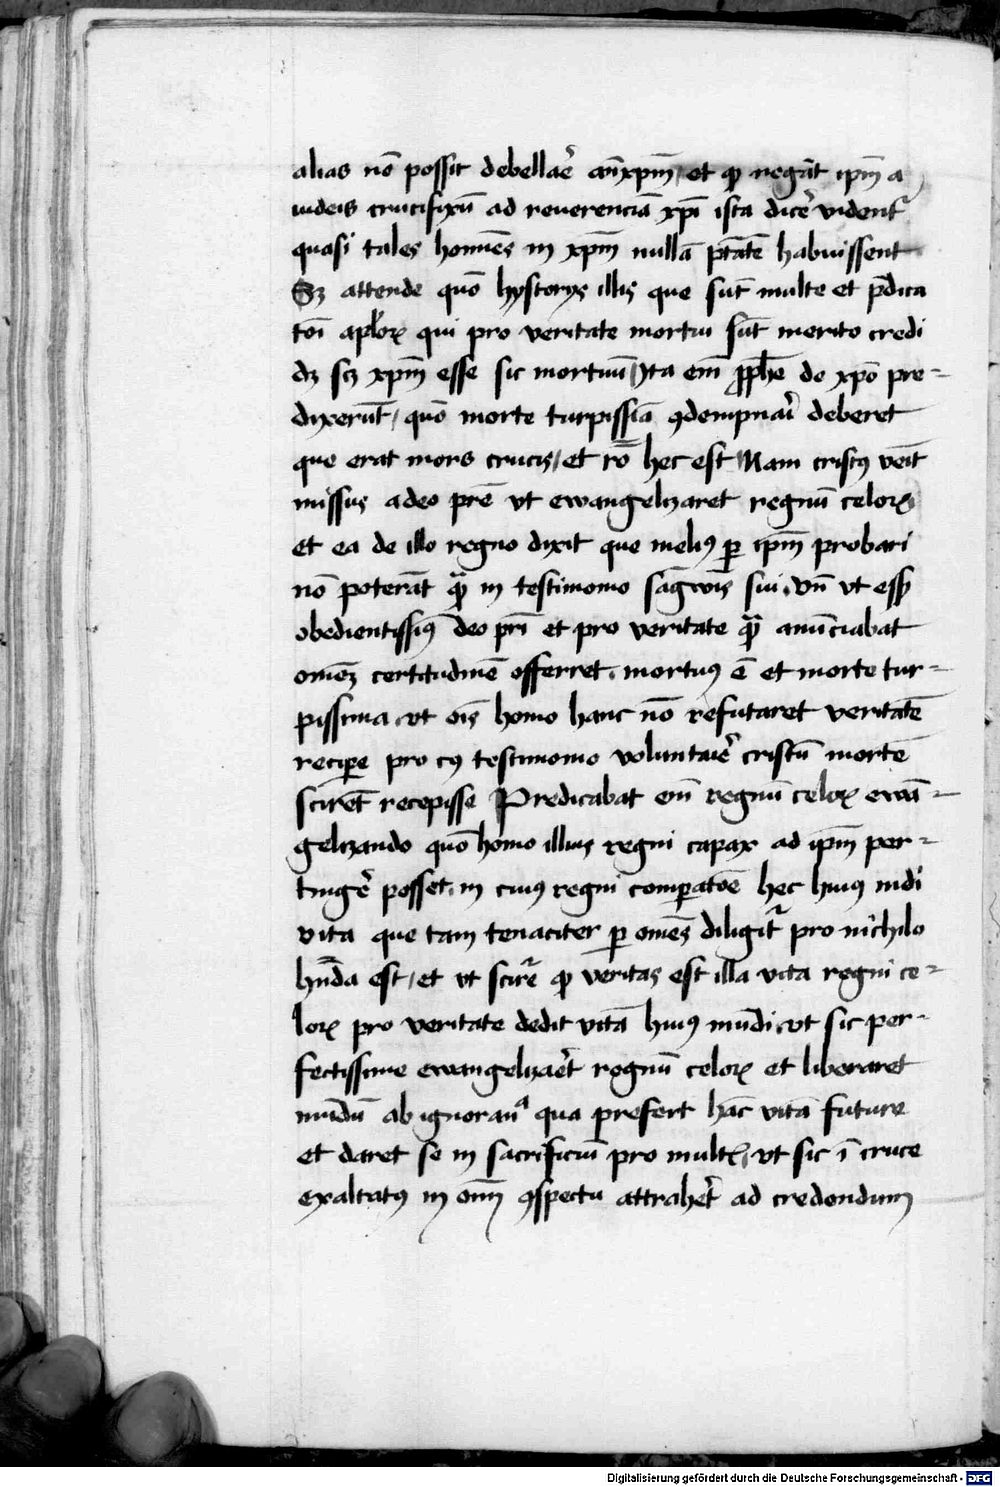 alias nō possit debellar̃ antixpm̄ / et qꝫ negāt ip̄m a
iudeis crucifixū ad reuerenciā xpī ista dicer̃ vident̃
quasi tales homīes in xpm̄ nullā ptātē habuissent
Sꝫ attende quō hystorijs illis que sūt multe et p̄dica
toī apl'oꝝ qui pro veritate mortui sūt merito credi
dꝫ scꝫ xpm̄ esse sic mortuū / Ita em̄ ꝓphē de xpō pre=
dixerūt / quō morte turpissīa ꝯdempnar̃i deberet
que erat mors crucis / et rō hec est Nam cristꝰ veīt
missus a deo pr̄e vt ewangelizaret regnū celoꝝ
et ea de illo regno dixit que meliꝰ ꝑ ip̄m probari
nō poterāt qᷓ in testimonio sāgwīs sui . Vn̄ vt ess3
obedientissiꝰ deo pr̄i et pro veritate qᷓ anūciabat
omēꝫ certitudinē offerret . mortuꝰ ē et morte tur=
pissima . vt oīs homo hanc nō refutaret veritatē
recipe pro cꝰ testimonio voluntarie cristū mortē
scirēt recepisse Predicabat em̄ regnū celoꝝ ewā=
gelizando quō homo illius regni capax ad ip̄m per=
tinger̃ posset . in cuiꝰ regni comparatōe hec huiꝰ mūdi
vita que tam tenaciter ꝑ omēs diligit̃ pro nichilo
hn̄da est / et vt scir̃e qꝫ veritas est illa vita regni ce=
loꝝ pro veritate dedit vitā huiꝰ mūdi . vt sic per=
fectissime ewangelizar̃et regnū celoꝝ et liberaret
mūdū ab ignoranᵃ qua prefert hāc vitā future
et daret se in sacrificiū pro multꝭ . vt sic ī cruce
exaltatꝰ in om̄ ꝯspectu attraher̃t ad credendum
Digitalisierung gefördert durch die Deutsche Forschungsgemeinschaft - DFG